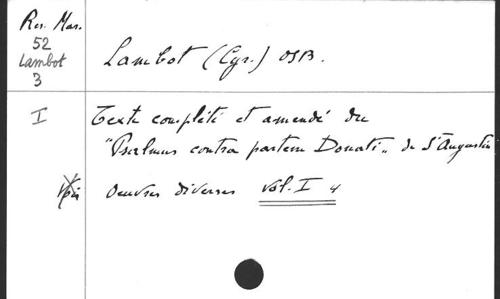 Res. Mar.
52
Lambot
3
Lambot (Cyr.) OSB.
I
Texte complété et amendé du
"Psalmus contra partem Donati" de S'Augustin
Voir
Oeuvres diverses vol. I